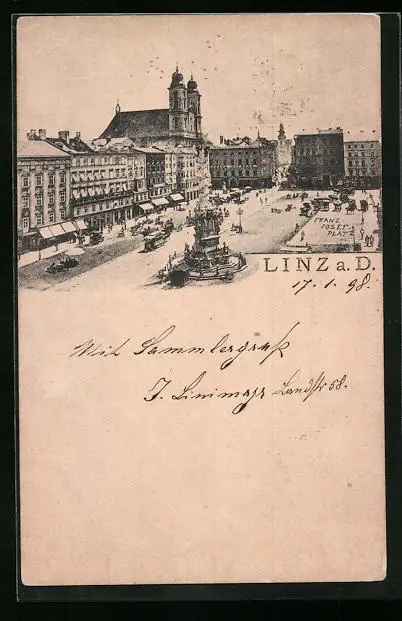 FRANZ
JOSEF-
PLATZ
LINZ a. D.
17. 1. 98.
Mit Sammlergruß
J. Linimayr Landstr 58.